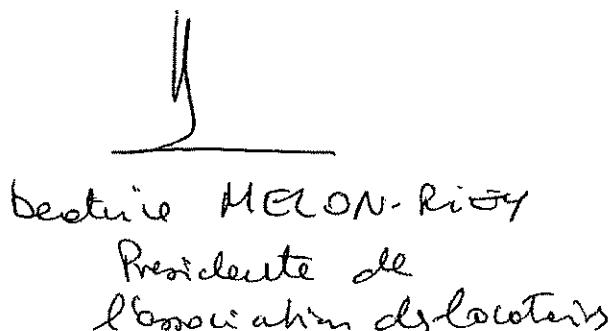 Beatrice MELON-RiEY
Presidente de
l'association des locataires